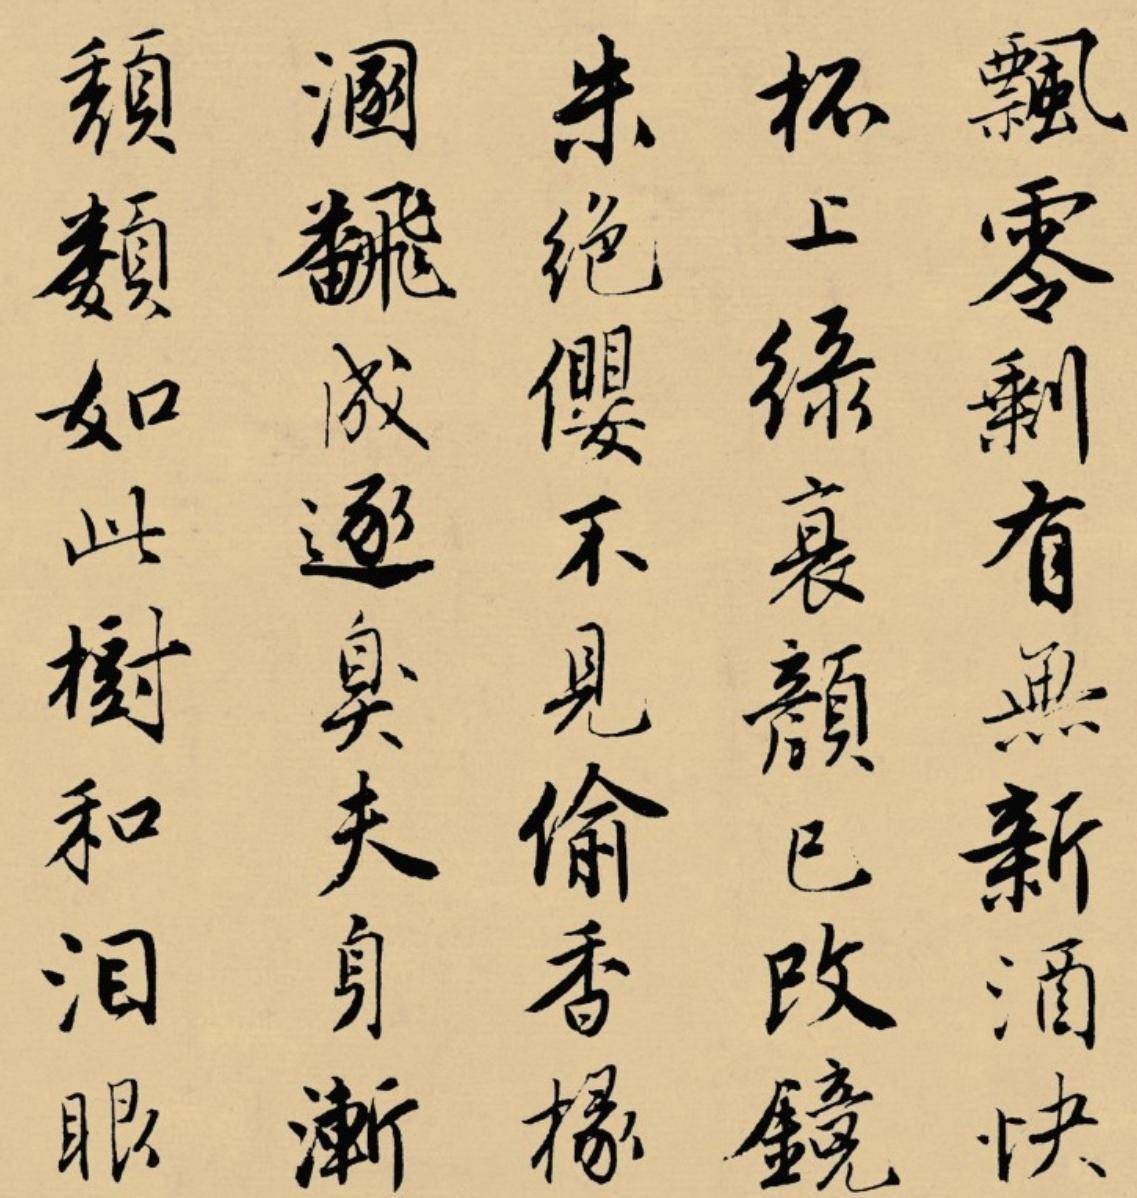 飄零剩有無新酒快
杯上綠衰顏已改鏡
朱絕纓不見偷香掾
溷飜成逐臭夫身漸
頹類如此樹和泪眼